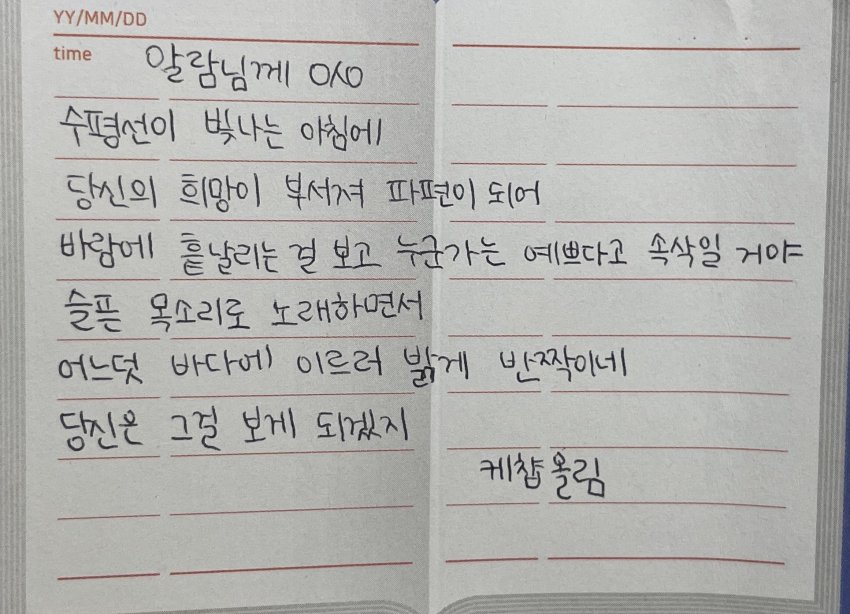 YY/MM/DD
time
알람님께 ㅇㅅㅇ
수평선이 빛나는 아침에
당신의 희망이 부서져 파편이 되어
바람에 흩날리는 걸 보고 누군가는 예쁘다고 속삭일 거야
슬픈 목소리로 노래하면서
어느덧 바다에 이르러 밝게 반짝이네
당신은 그걸 보게 되겠지
케챱 올림